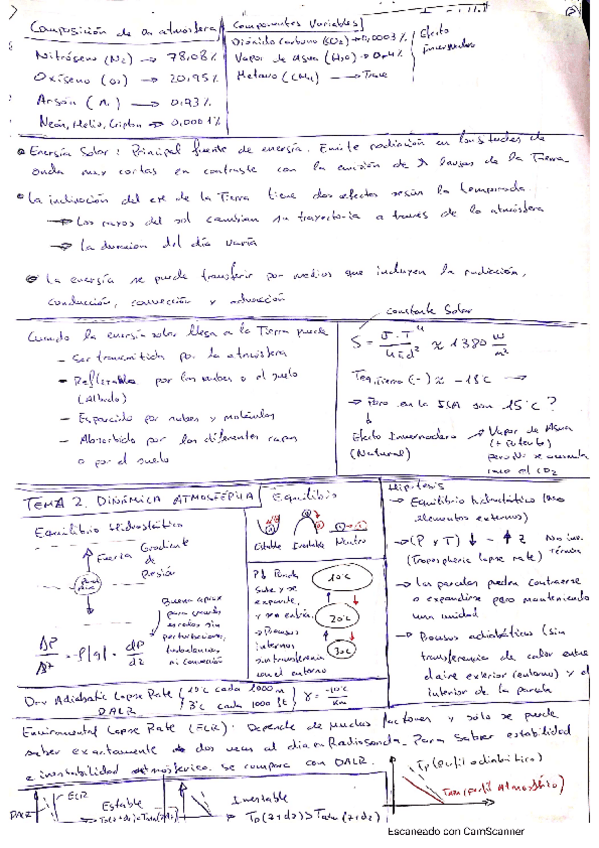 Composición de la atmosfera
Nitrógeno (N2) → 78,08%
Oxígeno (O2) → 20,95%
Argón (A) → 0,93%
Neón, Helio, Cripton → 0,0001%
Componentes Variables
Dióxido Carbono (CO2) → 0,0003%
Vapor de Agua (H2O) → 0-4%
Metano (CH4) → Traza
Efecto invernadero
Energía Solar: Principal fuente de energía. Emite radiación en longitudes de
onda muy cortas en contraste con la emisión de λ largas de la Tierra
La inclinación del eje de la Tierra tiene dos efectos según la temporada
→ Los rayos del sol cambian su trayectoria a través de la atmósfera
→ La duración del día varía
La energía se puede transferir por medios que incluyen la radiación,
conducción, convección y advección
Cuando la energía solar llega a la Tierra puede
- Ser transmitida por la atmósfera
- Reflejada por las nubes o el suelo
(Albedo)
- Esparcido por nubes y moléculas
- Absorbido por los diferentes capas
o por el suelo
constante Solar
S = σ·T⁴ / 4πd² ≈ 1380 W/m²
≈ -18°C →
→ Pero en la ISA son 15°C?
Efecto Invernadero
(Natural)
Vapor de Agua
(+ Potente)
TEMA 2. DINÁMICA ATMOSFÉRICA
Equilibrio Hidrostático
Fuerza Gradiente
de
Presión
ΔP
dP
dz
Equilibrio
Estable Inestable Neutro
Parcela
Sube y se
expande,
y se enfría
→ Procesos
internos
sin transferencia
con el entorno
10°C
20°C
30°C
Hipótesis
→ Equilibrio hidrostático (no
elementos externos)
→ (P y T) ↓ - ↑ z
(Tropospheric lapse rate)
No inv.
Térmica
→ Las parcelas pueden contraerse
o expandirse pero manteniendo
una unidad
→ Procesos adiabáticos (sin
transferencia de calor entre
el aire exterior (entorno) y el
interior de la parcela
Dry Adiabatic Lapse Rate
DALR
10°C cada 1000 m
3°C cada 1000 ft
γ = -10°C / Km
Environmental Lapse Rate (ELR). Depende de muchos factores y solo se puede
saber exactamente dos veces al día en Radiosonda. Para saber estabilidad
e inestabilidad atmosférica se compara con DALR.
DALR
ELR
Estable
Inestable
→ Tp(z+dz) > Tatm(z+dz)
Tp (Perfil adiabático)
Tatm (Perfil Atmosférico)
Escaneado con CamScanner